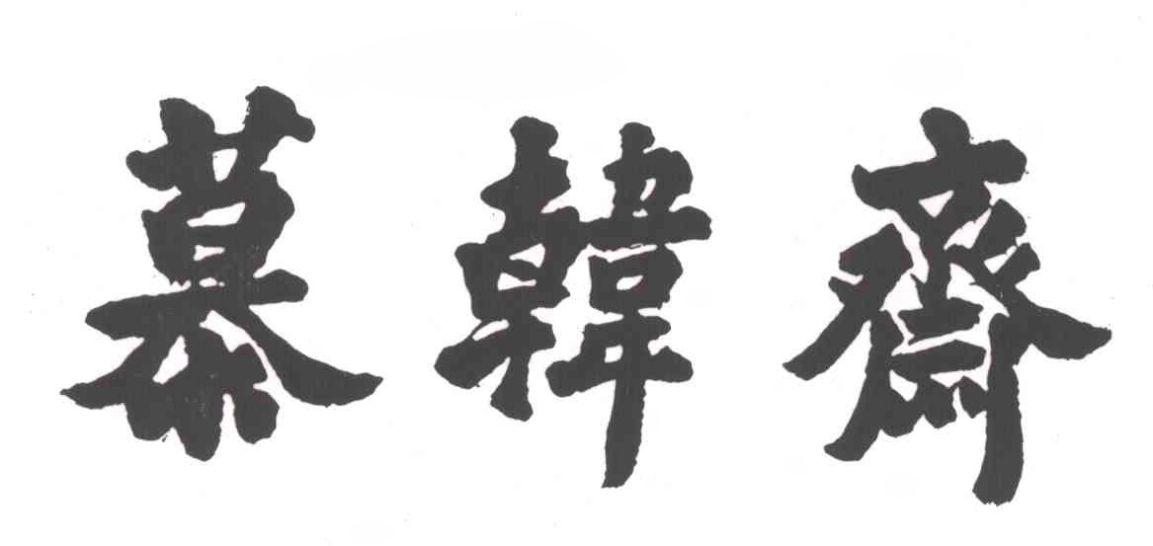 慕韓齋